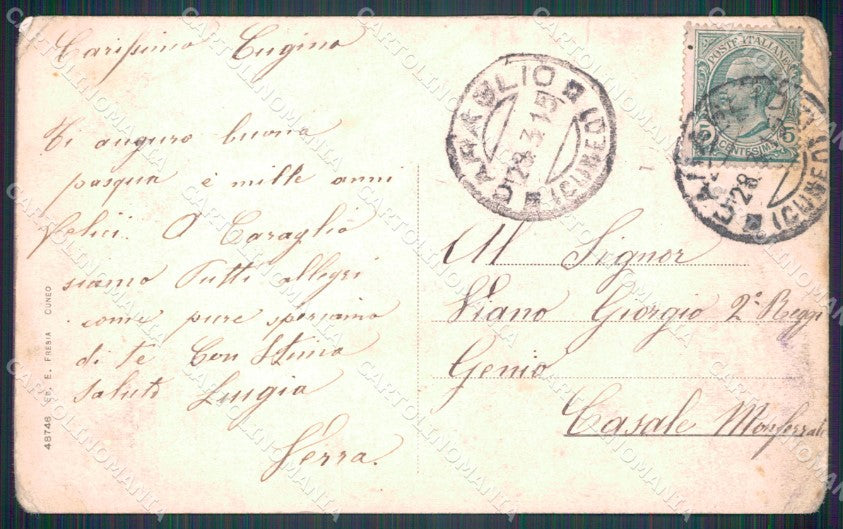 Carissimo Cugino
Ti auguro buona
pasqua e mille anni
felici. A Caraglio
siamo Tutti allegri
come pure speriamo
di te Con Stima
saluti Luigia
Serra.
CARAGLIO (CUNEO)
28.3.15
POSTE ITALIANE
5 CENTESIMI 5
CARAGLIO (CUNEO)
28
Al Signor
Viano Giorgio 2º Regg
Genio
Casale Monferrato
48746 ED. E. FRESIA CUNEO
CARTOLINOMANIA